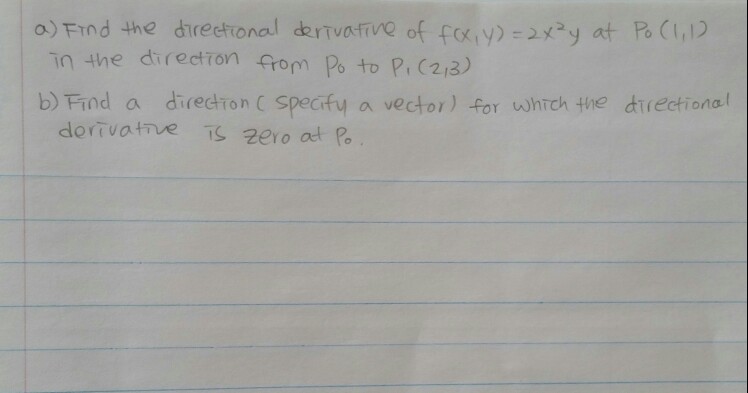 a) Find the directional derivative of f(x,y) = 2x²y at P₀(1,1)
in the direction from P₀ to P₁(2,3)
b) Find a direction (specify a vector) for which the directional
derivative is zero at P₀.